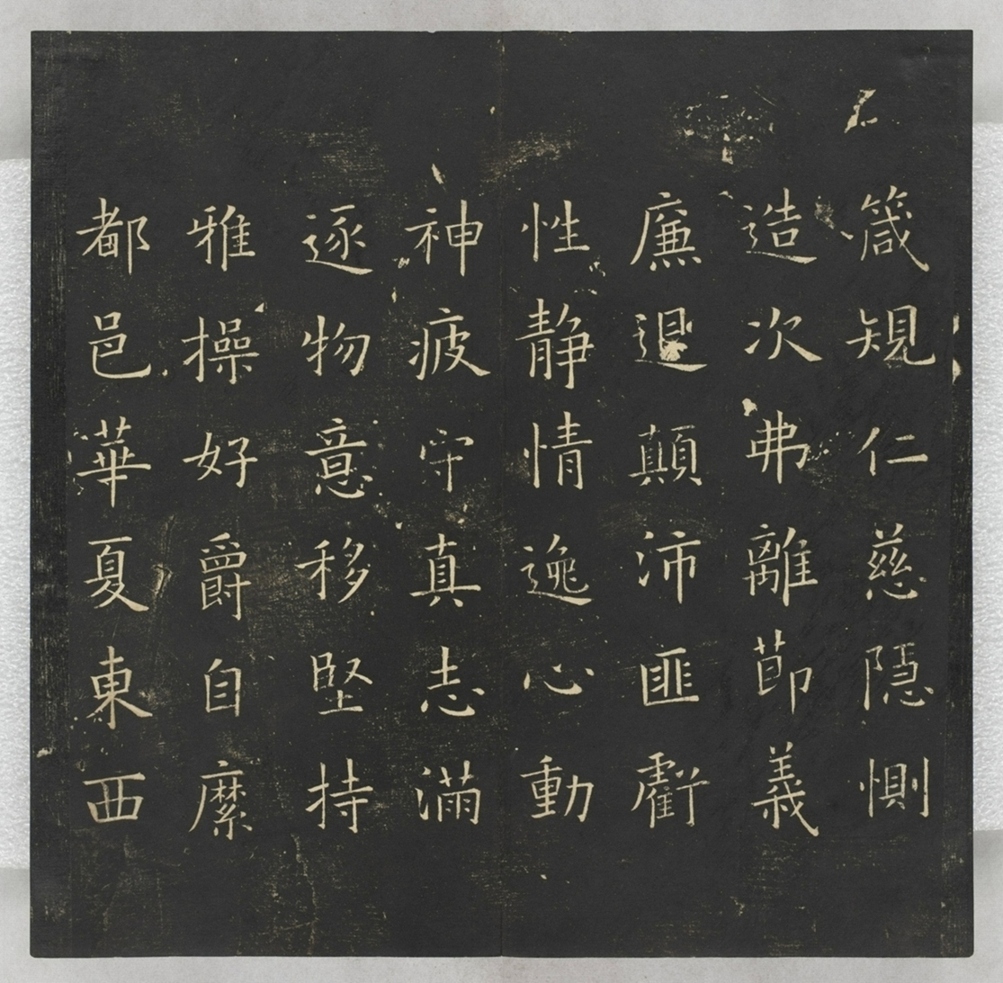 箴規仁慈隱惻
造次弗離節義
廉退顛沛匪虧
性静情逸心動
神疲守真志滿
逐物意移堅持
雅操好爵自縻
都邑華夏東西